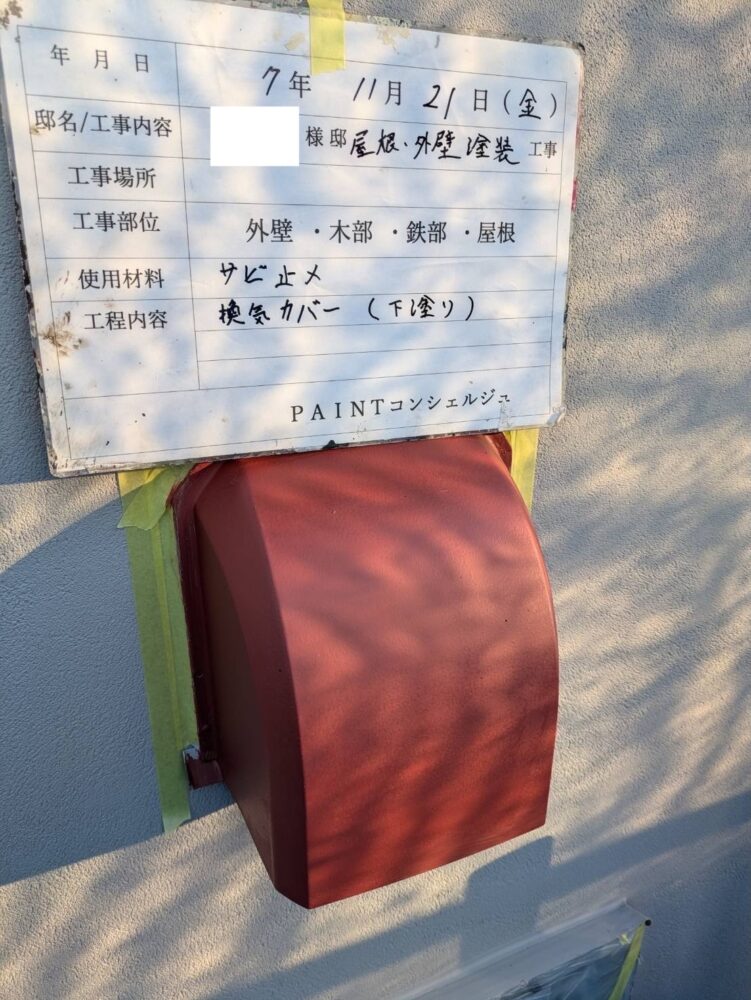 年 月 日 7年 11月 21日(金)
邸名/工事内容 様邸 屋根・外壁塗装 工事
工事場所
工事部位 外壁 ・木部 ・鉄部 ・屋根
使用材料 サビ止メ
工程内容 換気カバー (下塗り)
PAINTコンシェルジュ